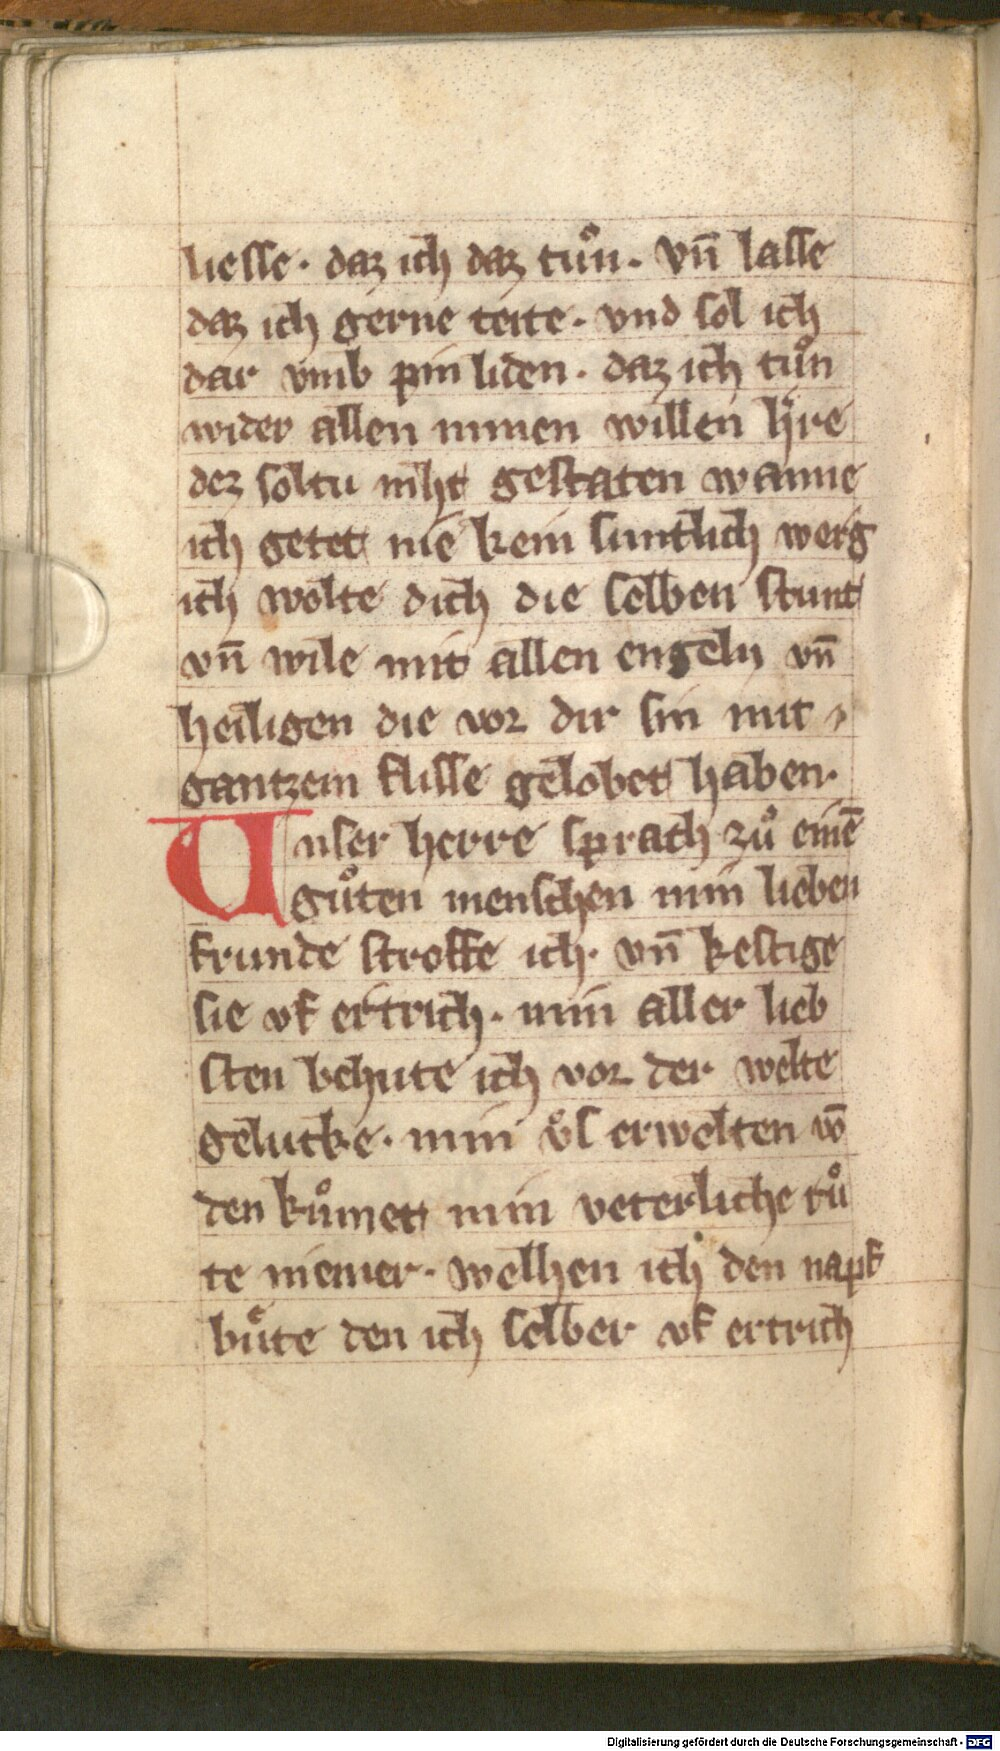 liesse · daz ich daz tuͦn · vn̄ lasse
daz ich gerne teite · vnd sol ich
dar vmb pin liden · daz ich tuͦn
wider allen minen willen h're
dez soltu niht gestaten wanne
ich getet nie kein suntlich werg
ich wolte dich die selben stunt
vn̄ wile mit allen engeln vn̄
heiligen die vor dir sin mit
gantzem flisse gelobet haben ·
Unser herre sprach zuͦ einē
guͦten menschen min lieben
frunde stroffe ich · vn̄ kestige
sie vf ertrich · min aller lieb
sten behute ich vor der welte
gelucke · min vͦs erwelten vō
den kuͦmet min veterliche ruͦ
te niemer · welhen ich den napf
bu̍te den ich selber vf ertrich
Digitalisierung gefördert durch die Deutsche Forschungsgemeinschaft - DFG